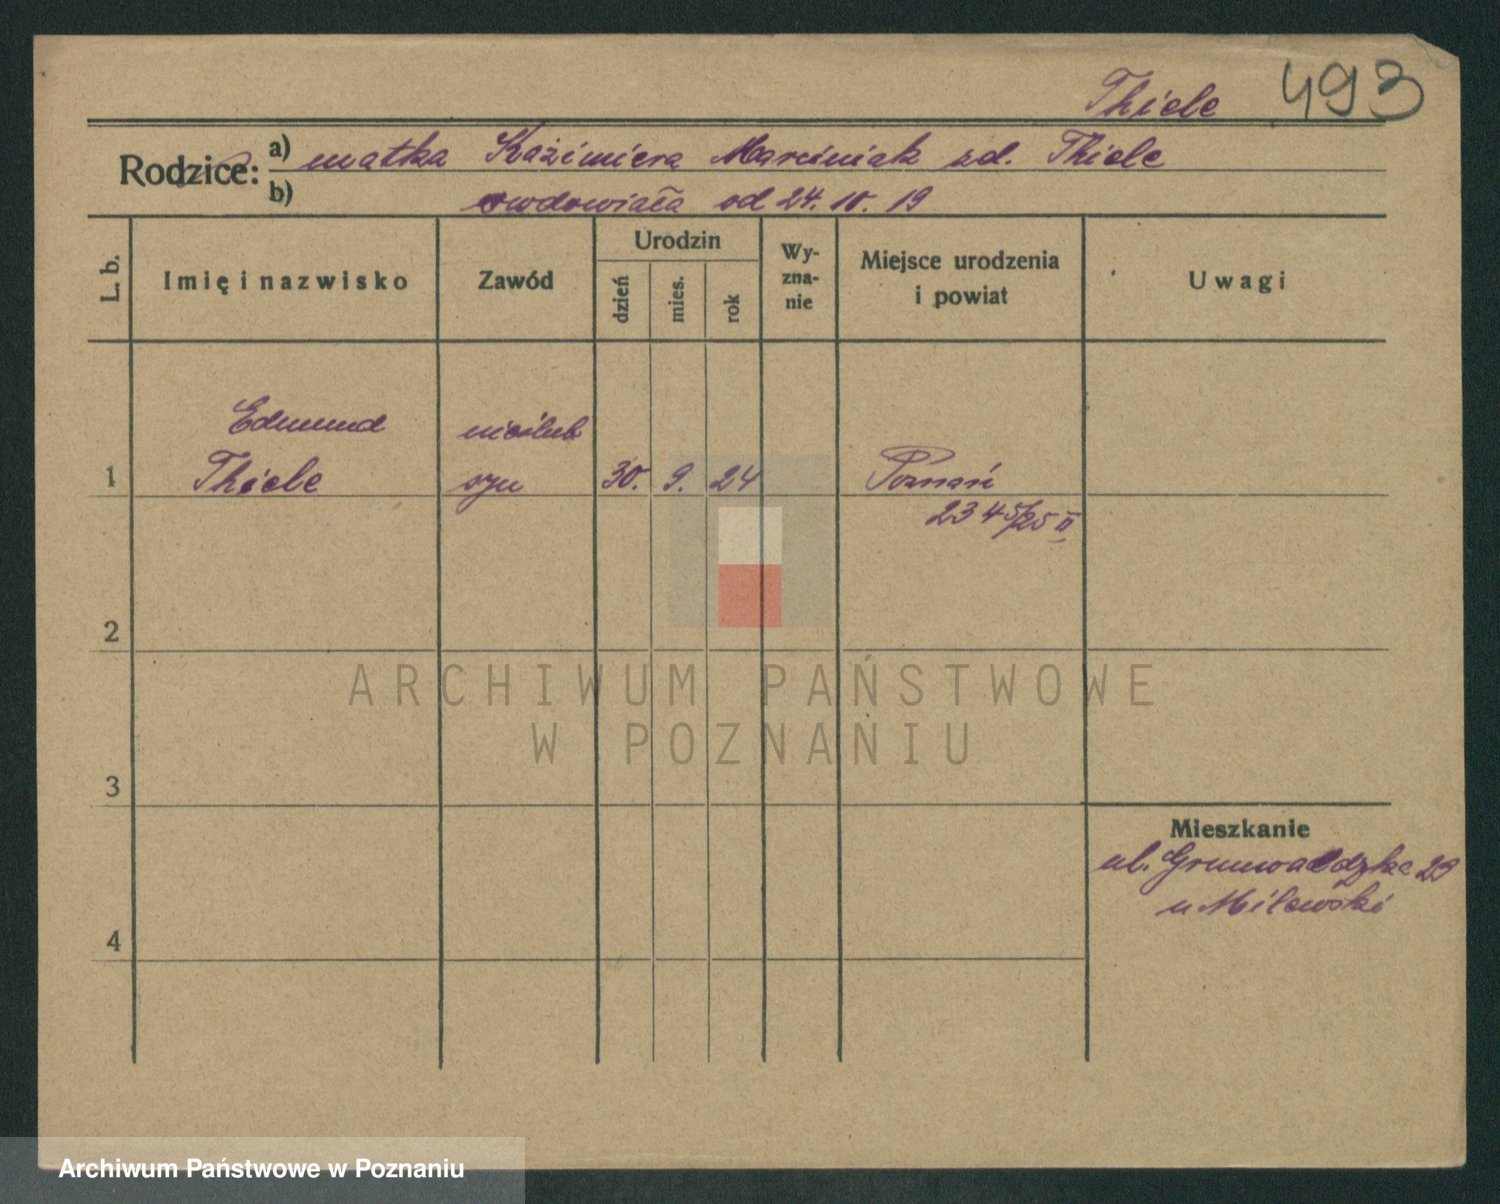 Thiele 493
Rodzice: a) matka Kaźimiera Marciniak zd. Thiele
b) owdowiała od 24. 10. 19
L. b.
Imię i nazwisko
Zawód
Urodzin
dzień
mies.
rok
Wy-
zna-
nie
Miejsce urodzenia
i powiat
Uwagi
Edmund nieślub.
1 Thiele syn 30. 9. 24 Poznań
2345/25 II
2
3
4
Mieszkanie
ul. Grunwaldzka 29
u Milewski
ARCHIWUM PAŃSTWOWE
W POZNANIU
Archiwum Państwowe w Poznaniu